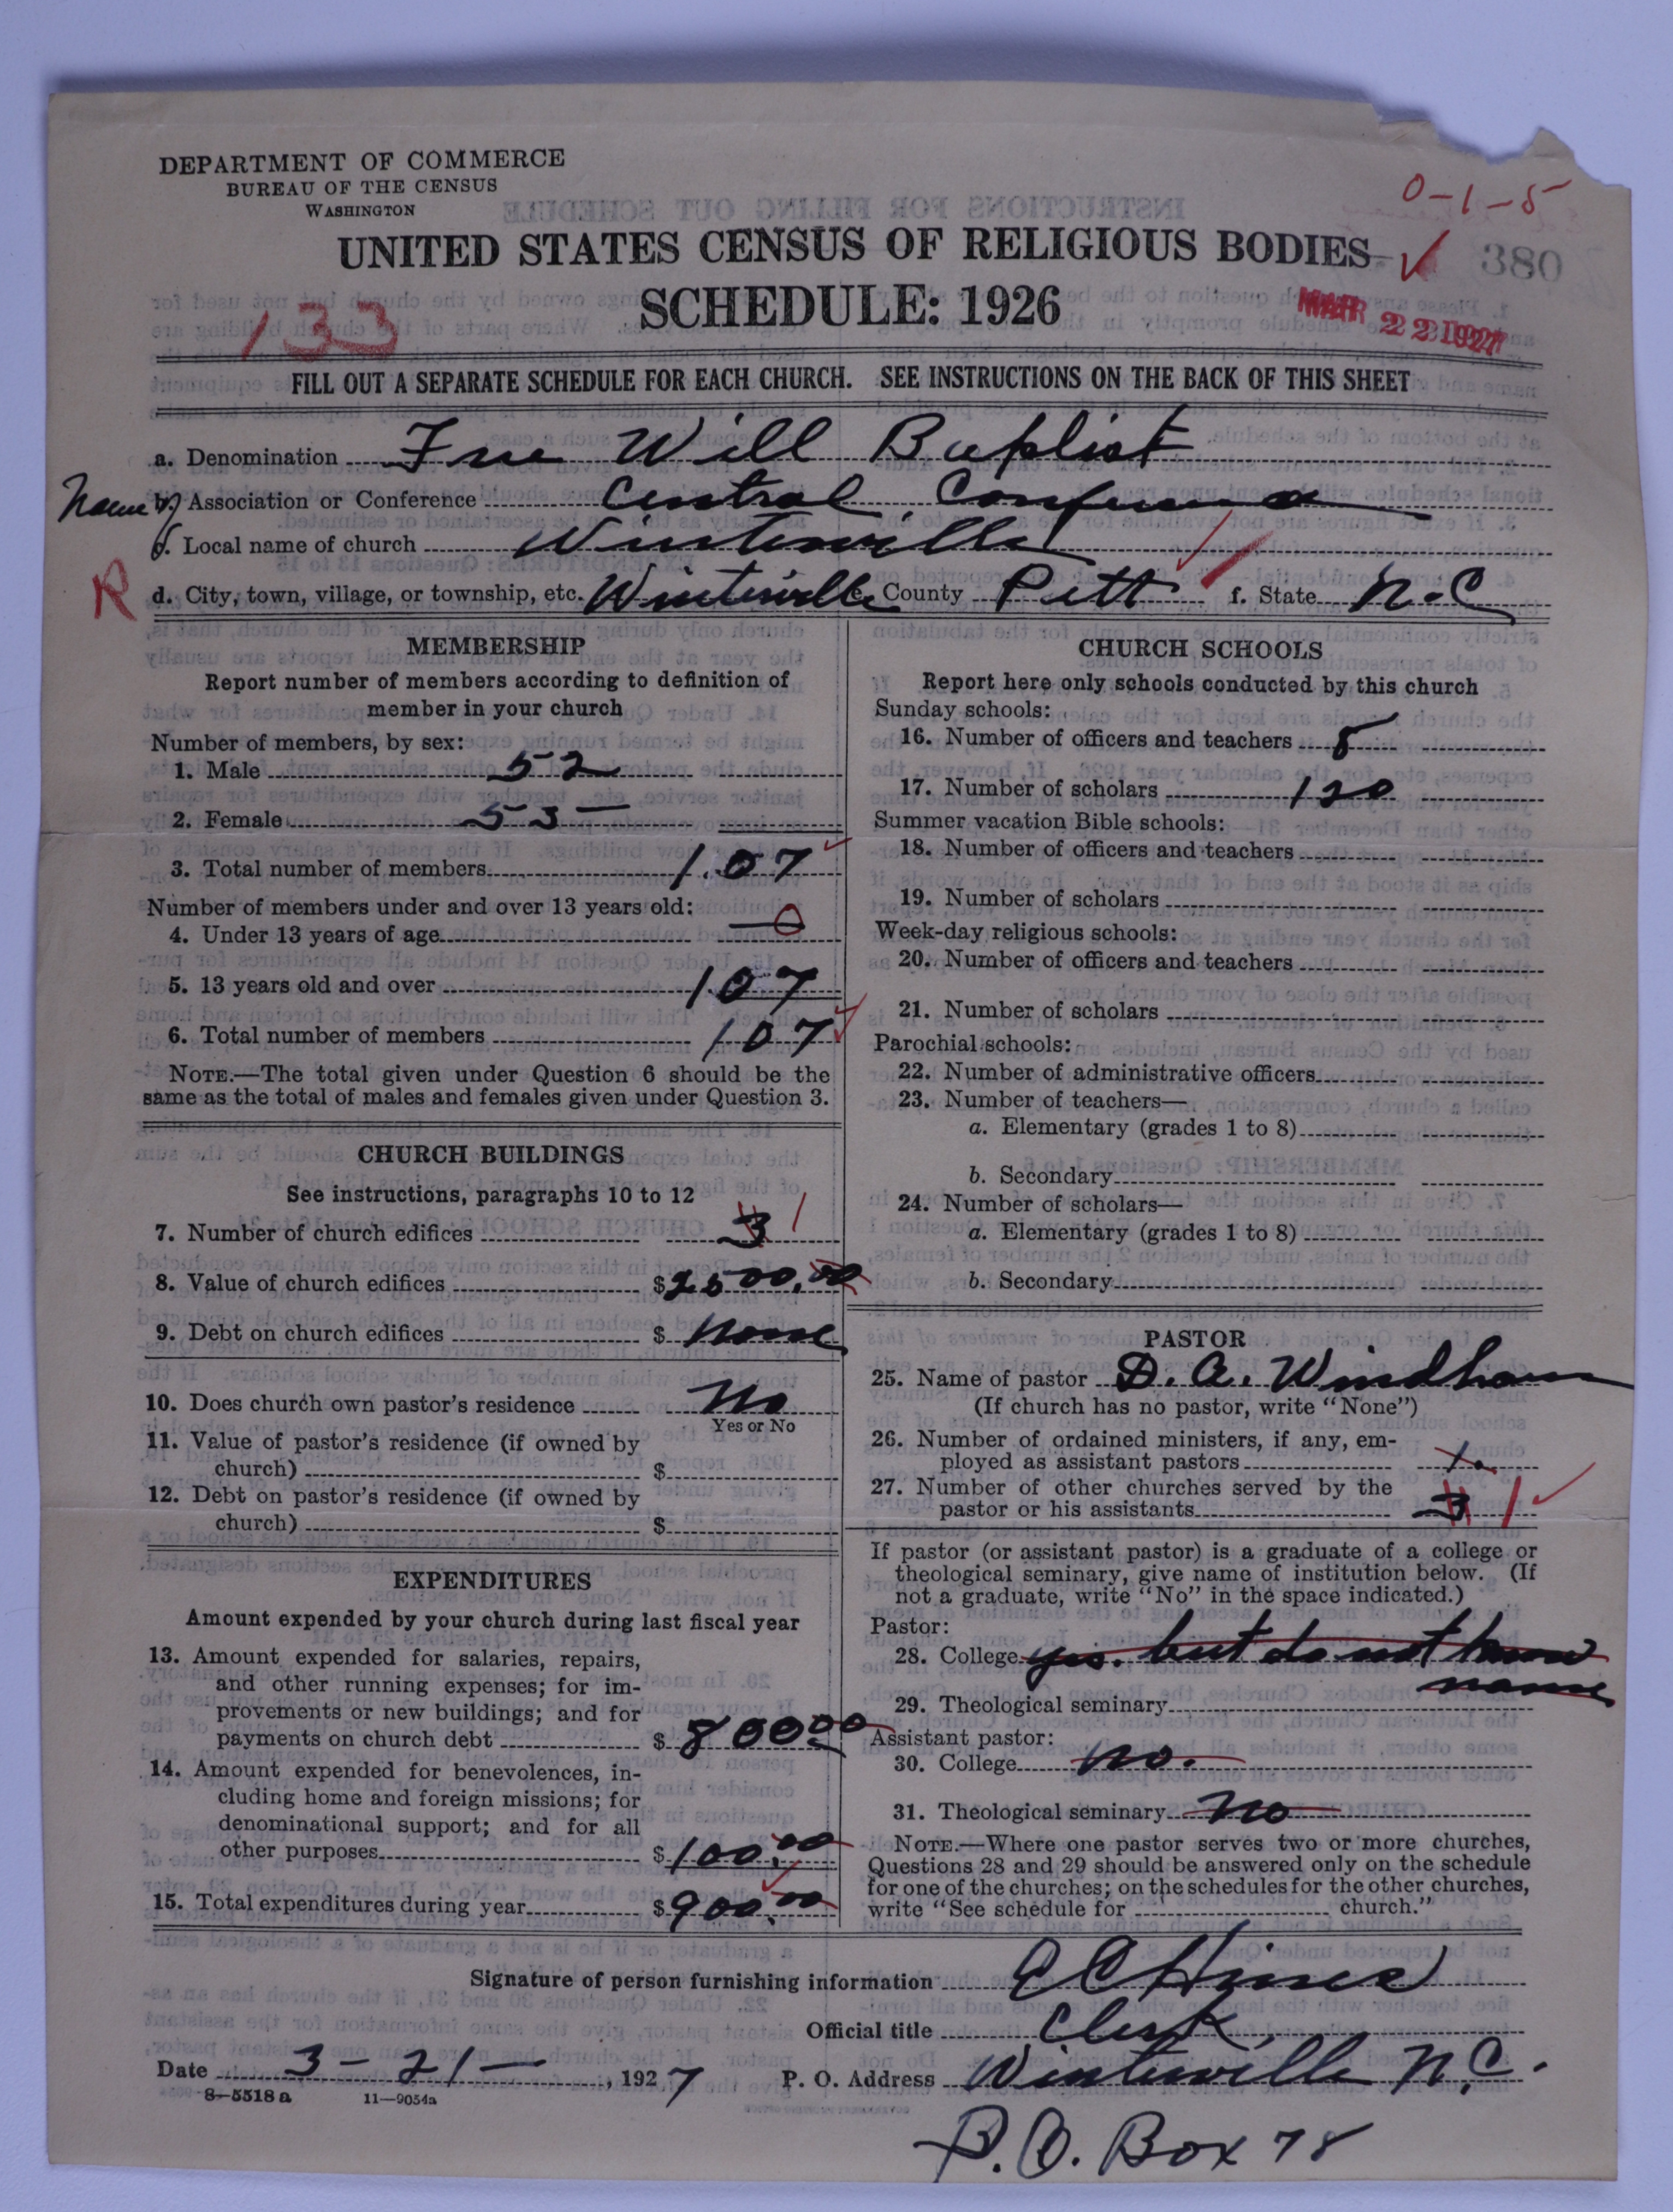 DEPARTMENT OF COMMERCE
BUREAU OF THE CENSUS
WASHINGTON
0-1-5
UNITED STATES CENSUS OF RELIGIOUS BODIES
380
SCHEDULE: 1926
133
MAR 22 1927
FILL OUT A SEPARATE SCHEDULE FOR EACH CHURCH. SEE INSTRUCTIONS ON THE BACK OF THIS SHEET
a. Denomination Free Will Baptist
Name of
b. Association or Conference Central Conference
c. Local name of church Winterville
R
d. City, town, village, or township, etc. Winterville e. County Pitt f. State N.C
MEMBERSHIP
Report number of members according to definition of
member in your church
Number of members, by sex:
1. Male 52
2. Female 55
3. Total number of members 107
Number of members under and over 13 years old:
4. Under 13 years of age 0
5. 13 years old and over 107
6. Total number of members 107
NOTE.—The total given under Question 6 should be the
same as the total of males and females given under Question 3.
CHURCH BUILDINGS
See instructions, paragraphs 10 to 12
7. Number of church edifices 3 1
8. Value of church edifices $2500.00
9. Debt on church edifices $ None
10. Does church own pastor's residence No
Yes or No
11. Value of pastor's residence (if owned by
church) $
12. Debt on pastor's residence (if owned by
church) $
EXPENDITURES
Amount expended by your church during last fiscal year
13. Amount expended for salaries, repairs,
and other running expenses; for im-
provements or new buildings; and for
payments on church debt $ 800.00
14. Amount expended for benevolences, in-
cluding home and foreign missions; for
denominational support; and for all
other purposes $100.00
15. Total expenditures during year $900.00
CHURCH SCHOOLS
Report here only schools conducted by this church
Sunday schools:
16. Number of officers and teachers 8
17. Number of scholars 120
Summer vacation Bible schools:
18. Number of officers and teachers
19. Number of scholars
Week-day religious schools:
20. Number of officers and teachers
21. Number of scholars
Parochial schools:
22. Number of administrative officers
23. Number of teachers—
a. Elementary (grades 1 to 8)
b. Secondary
24. Number of scholars—
a. Elementary (grades 1 to 8)
b. Secondary
PASTOR
25. Name of pastor D. A. Windham
(If church has no pastor, write "None")
26. Number of ordained ministers, if any, em-
ployed as assistant pastors
27. Number of other churches served by the
pastor or his assistants 3 1
If pastor (or assistant pastor) is a graduate of a college or
theological seminary, give name of institution below. (If
not a graduate, write "No" in the space indicated.)
Pastor:
28. College yes. but do not know
name
29. Theological seminary
Assistant pastor:
30. College no.
31. Theological seminary no
NOTE.—Where one pastor serves two or more churches,
Questions 28 and 29 should be answered only on the schedule
for one of the churches; on the schedules for the other churches,
write "See schedule for church."
Signature of person furnishing information E C Hines
Official title Clerk
Date 3-21-, 1927 P. O. Address Winterville N.C.
8-5518a 11-9054a
P.O. Box 78